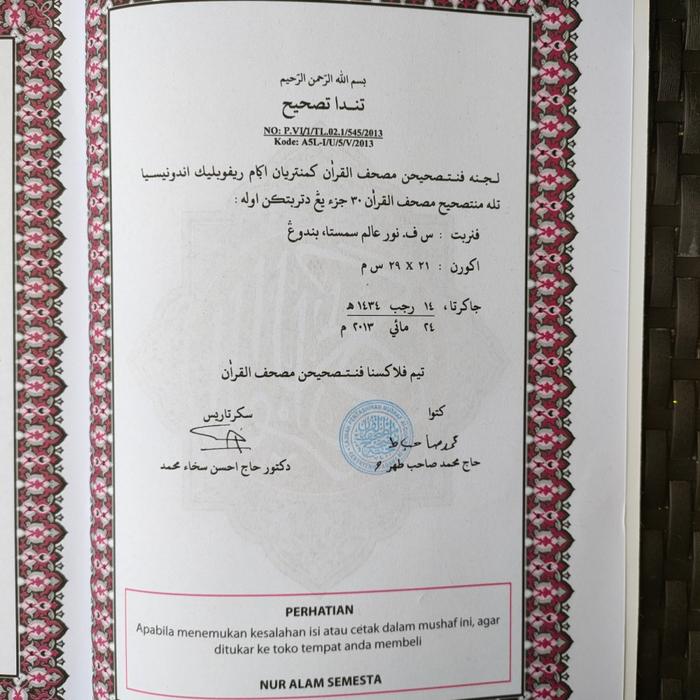 بسم الله الرّحمن الرّحيم
تندا تصحيح
NO: P.VI/1/TL.02.1/545/2013
Kode: A5L-I/U/5/V/2013
لجنه فنتصحيحن مصحف القرأن كمنتريان اڬام ريفوبليك اندونيسيا
تله منتصحيح مصحف القرأن ٣٠ جزء يڠ دتربتكن اوله :
فنربت : س ف. نور عالم سمستا، بندوڠ
اكورن : ٢١ X ٢٩ س م
جاكرتا، ١٤ رجب ١٤٣٤ هـ
٢٤ مائي ٢٠١٣ م
تيم فلاكسنا فنتصحيحن مصحف القرأن
كتوا
سكرتاريس
حاج محمد صاحب طهر
دكتور حاج احسن سخاء محمد
PERHATIAN
Apabila menemukan kesalahan isi atau cetak dalam mushaf ini, agar
ditukar ke toko tempat anda membeli
NUR ALAM SEMESTA